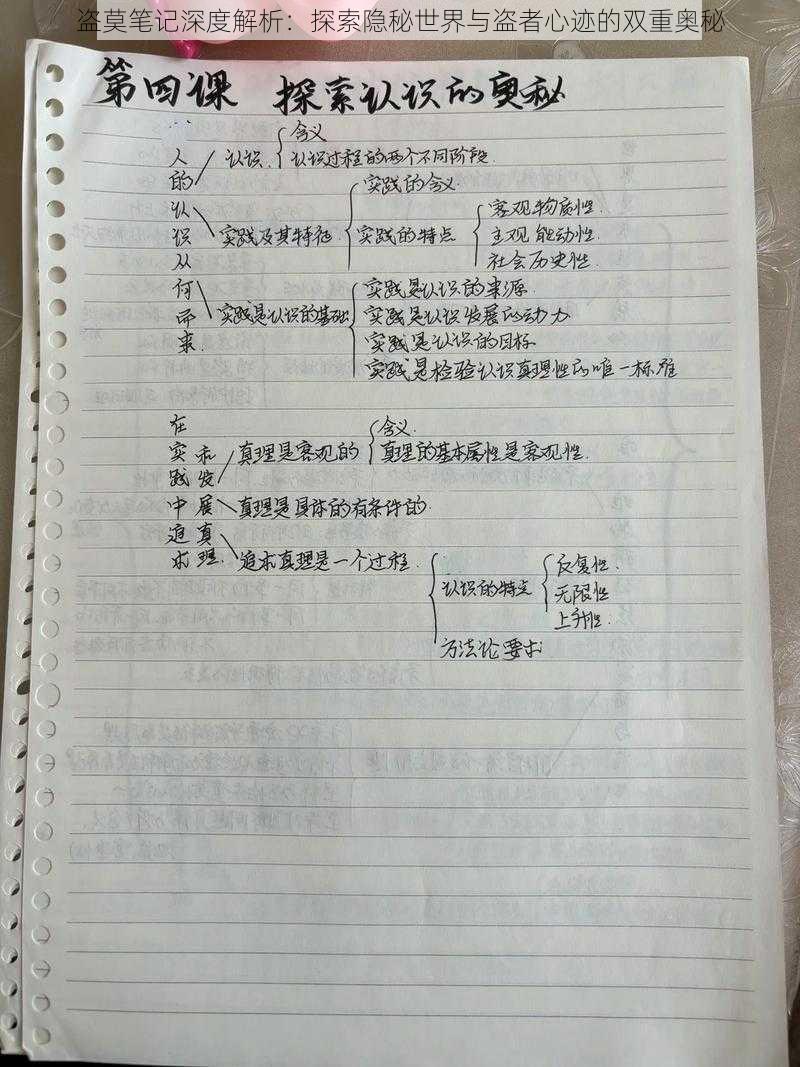 盗莫笔记深度解析：探索隐秘世界与盗者心迹的双重奥秘
第四课 探索认识的奥秘
人的认识从何而来
认识
含义
认识过程的两个不同阶段
实践及其特征
实践的含义
实践的特点
客观物质性
主观能动性
社会历史性
实践是认识的基础
实践是认识的来源
实践是认识发展的动力
实践是认识的目标
实践是检验认识真理性的唯一标准
在实践中追求和发展真理
真理是客观的
含义
真理的基本属性是客观性
真理是具体的有条件的
追求真理是一个过程
认识的特点
反复性
无限性
上升性
方法论要求